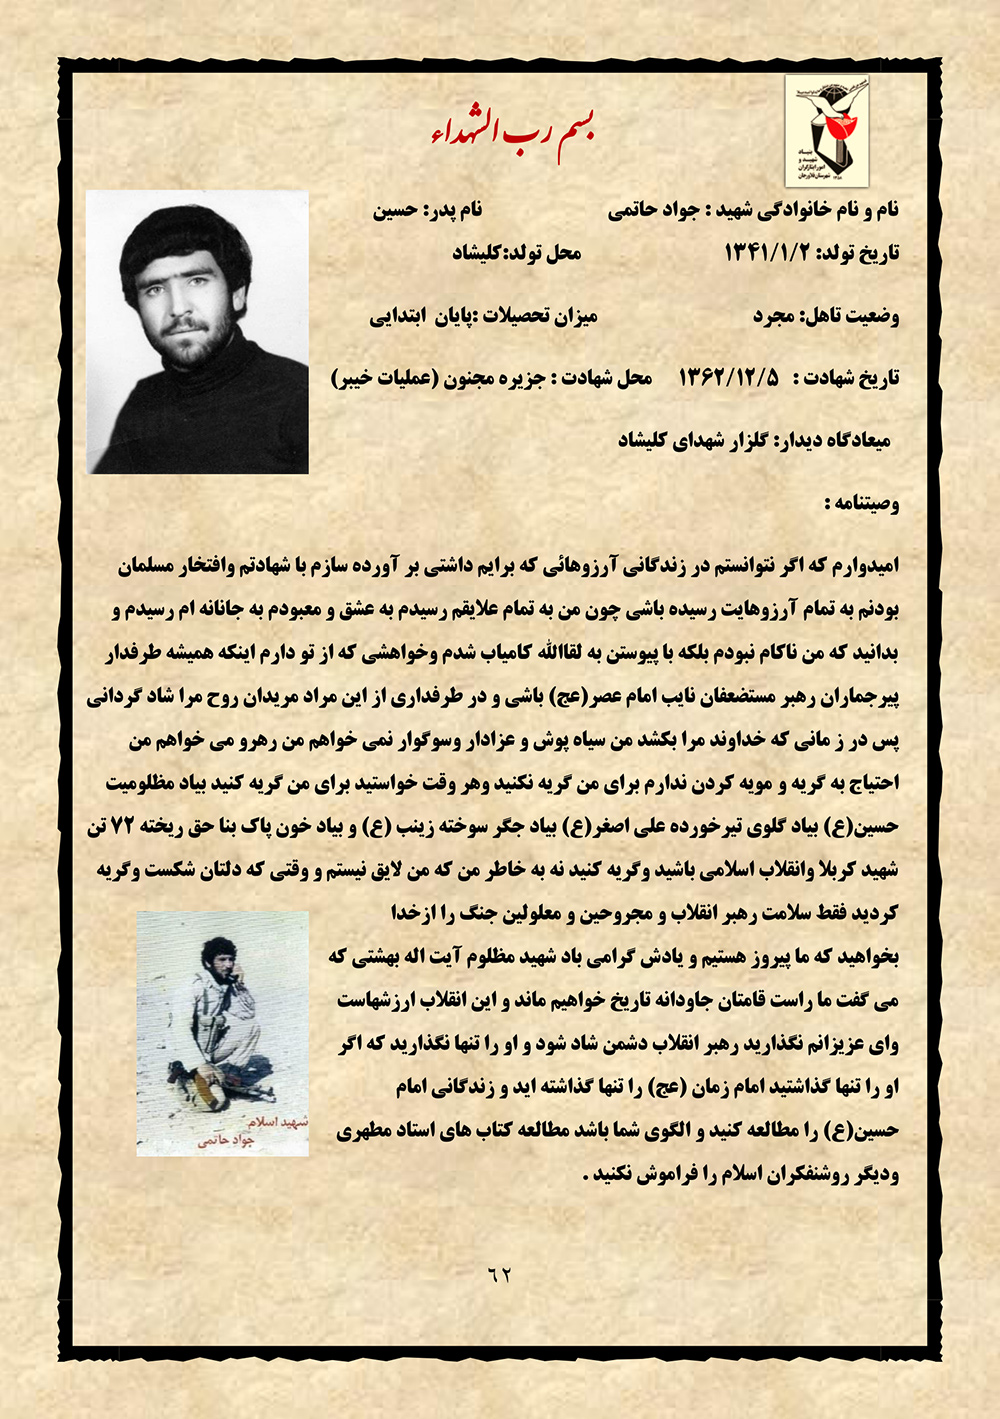 بسم رب الشهداء
بنیاد
شهید و
امور ایثارگران
شهرستان فلاورجان
نام و نام خانوادگی شهید : جواد حاتمی نام پدر: حسین
تاریخ تولد: ۱۳۴۱/۱/۲ محل تولد:کلیشاد
وضعیت تاهل: مجرد میزان تحصیلات :پایان ابتدایی
تاریخ شهادت : ۱۳۶۲/۱۲/۵ محل شهادت : جزیره مجنون (عملیات خیبر)
میعادگاه دیدار: گلزار شهدای کلیشاد
وصیتنامه :
امیدوارم که اگر نتوانستم در زندگانی آرزوهائی که برایم داشتی بر آورده سازم با شهادتم وافتخار مسلمان
بودنم به تمام آرزوهایت رسیده باشی چون من به تمام علایقم رسیدم به عشق و معبودم به جانانه ام رسیدم و
بدانید که من ناکام نبودم بلکه با پیوستن به لقاالله کامیاب شدم وخواهشی که از تو دارم اینکه همیشه طرفدار
پیرجماران رهبر مستضعفان نایب امام عصر(عج) باشی و در طرفداری از این مراد مریدان روح مرا شاد گردانی
پس در ز مانی که خداوند مرا بکشد من سیاه پوش و عزادار وسوگوار نمی خواهم من رهرو می خواهم من
احتیاج به گریه و مویه کردن ندارم برای من گریه نکنید وهر وقت خواستید برای من گریه کنید بیاد مظلومیت
حسین(ع) بیاد گلوی تیرخورده علی اصغر(ع) بیاد جگر سوخته زینب (ع) و بیاد خون پاک بنا حق ریخته ۷۲ تن
شهید کربلا وانقلاب اسلامی باشید وگریه کنید نه به خاطر من که من لایق نیستم و وقتی که دلتان شکست وگریه
کردید فقط سلامت رهبر انقلاب و مجروحین و معلولین جنگ را ازخدا
بخواهید که ما پیروز هستیم و یادش گرامی باد شهید مظلوم آیت اله بهشتی که
می گفت ما راست قامتان جاودانه تاریخ خواهیم ماند و این انقلاب ارزشهاست
وای عزیزانم نگذارید رهبر انقلاب دشمن شاد شود و او را تنها نگذارید که اگر
او را تنها گذاشتید امام زمان (عج) را تنها گذاشته اید و زندگانی امام
حسین(ع) را مطالعه کنید و الگوی شما باشد مطالعه کتاب های استاد مطهری
ودیگر روشنفکران اسلام را فراموش نکنید .
شهید اسلام
جواد حاتمی
۶۲